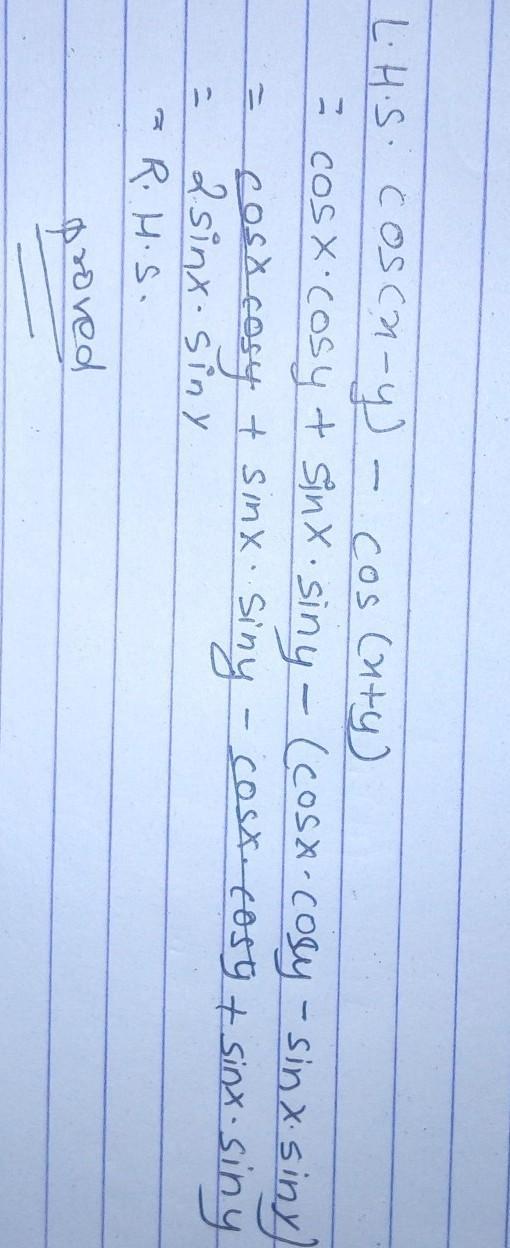 L.H.S. cos(x-y) - cos(x+y)
= cosx.cosy + sinx.siny - (cosx.cosy - sinx.siny)
= cosx cosy + sinx.siny - cosx.cosy + sinx.siny
= 2sinx.siny
= R.H.S.
proved